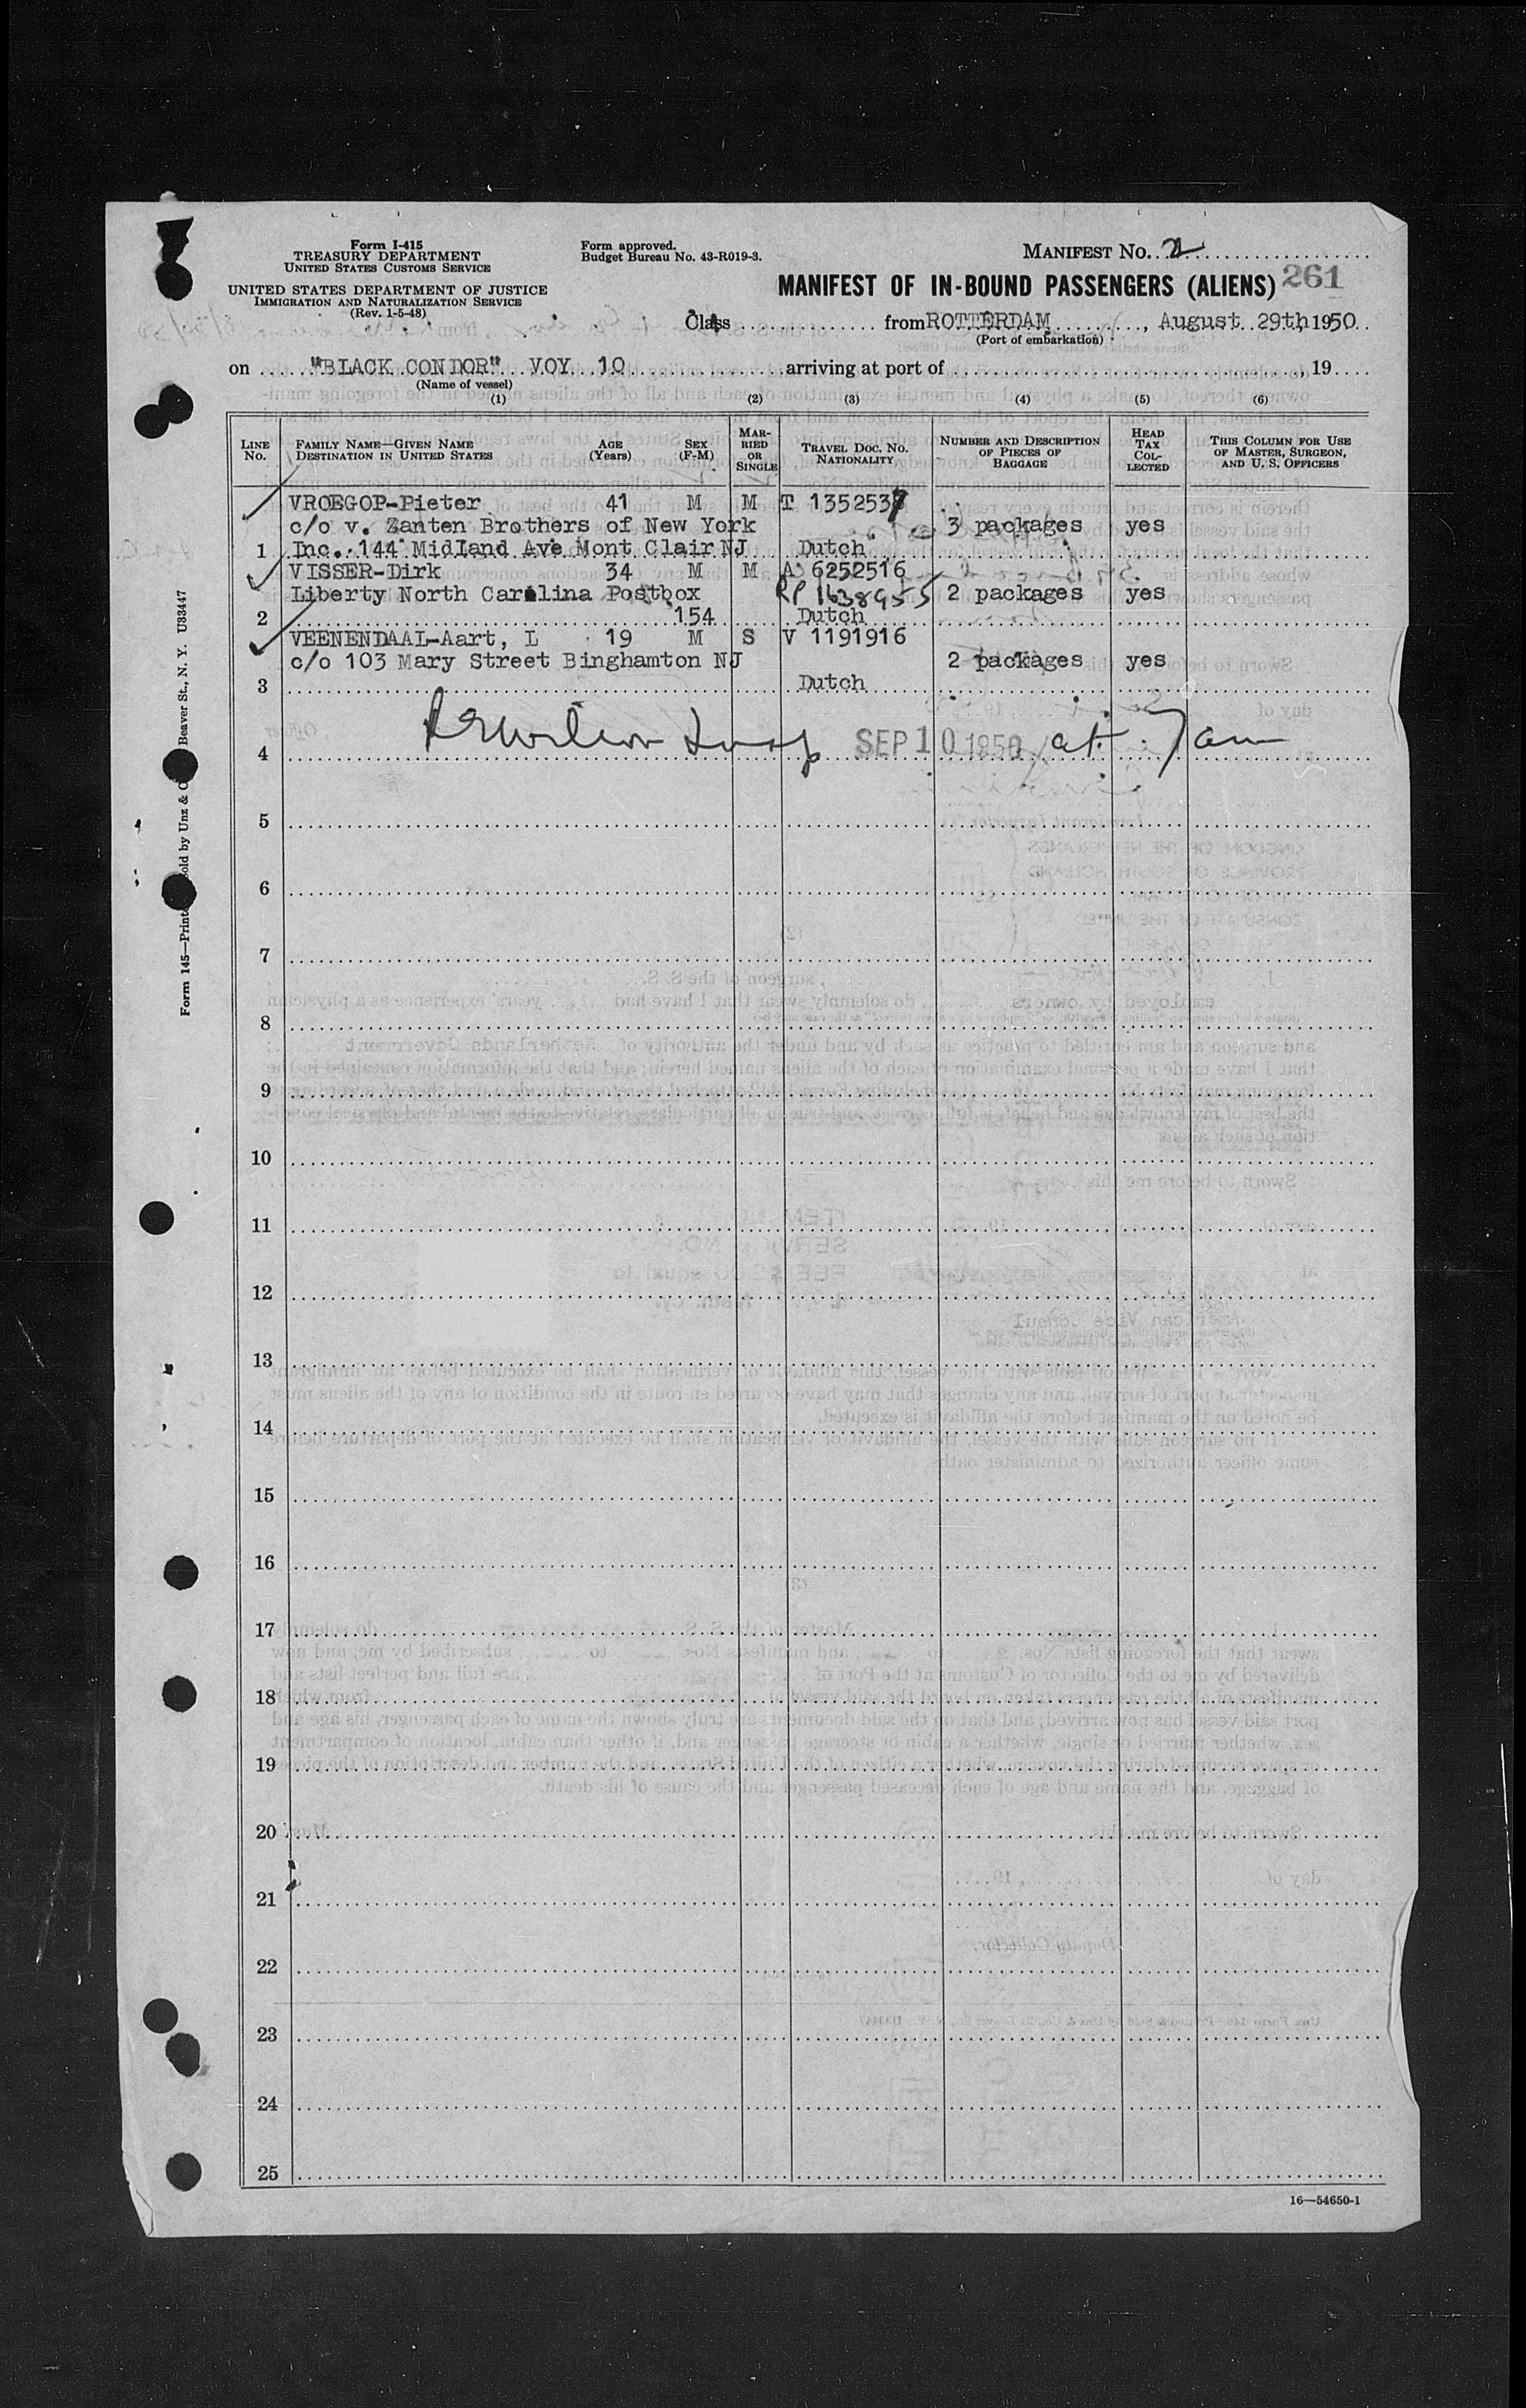 Form I-415
TREASURY DEPARTMENT
UNITED STATES CUSTOMS SERVICE
UNITED STATES DEPARTMENT OF JUSTICE
IMMIGRATION AND NATURALIZATION SERVICE
(Rev. 1-5-48)
Form approved.
Budget Bureau No. 43-R019-3.
MANIFEST No. 2
MANIFEST OF IN-BOUND PASSENGERS (ALIENS) 261
Class from ROTTERDAM, August 29th, 1950
(Port of embarkation)
on "BLACK CONDOR" VOY 10 arriving at port of , 19
(Name of vessel)
(1) (2) (3) (4) (5) (6)
LINE No. FAMILY NAME—GIVEN NAME DESTINATION IN UNITED STATES AGE (Years) SEX (F-M) MARRIED OR SINGLE TRAVEL DOC. NO. NATIONALITY NUMBER AND DESCRIPTION OF PIECES OF BAGGAGE HEAD TAX COLLECTED THIS COLUMN FOR USE OF MASTER, SURGEON, AND U. S. OFFICERS
VROEGOP-Pieter 41 M M T 1352537
c/o v. Zanten Brothers of New York 3 packages yes
1 Inc. 144 Midland Ave Mont Clair NJ Dutch
VISSER-Dirk 34 M M A 6252516
Liberty North Carolina Postbox RP 1638955 2 packages yes
2 154 Dutch
VEENENDAAL-Aart, L 19 M S V 1191916
c/o 103 Mary Street Binghamton NJ 2 packages yes
3 Dutch
4 SEP 10 1950 at 7 am
5
6
7
8
9
10
11
12
13
14
15
16
17
18
19
20
21
22
23
24
25
16—54650-1
Beaver St., N. Y. U33447